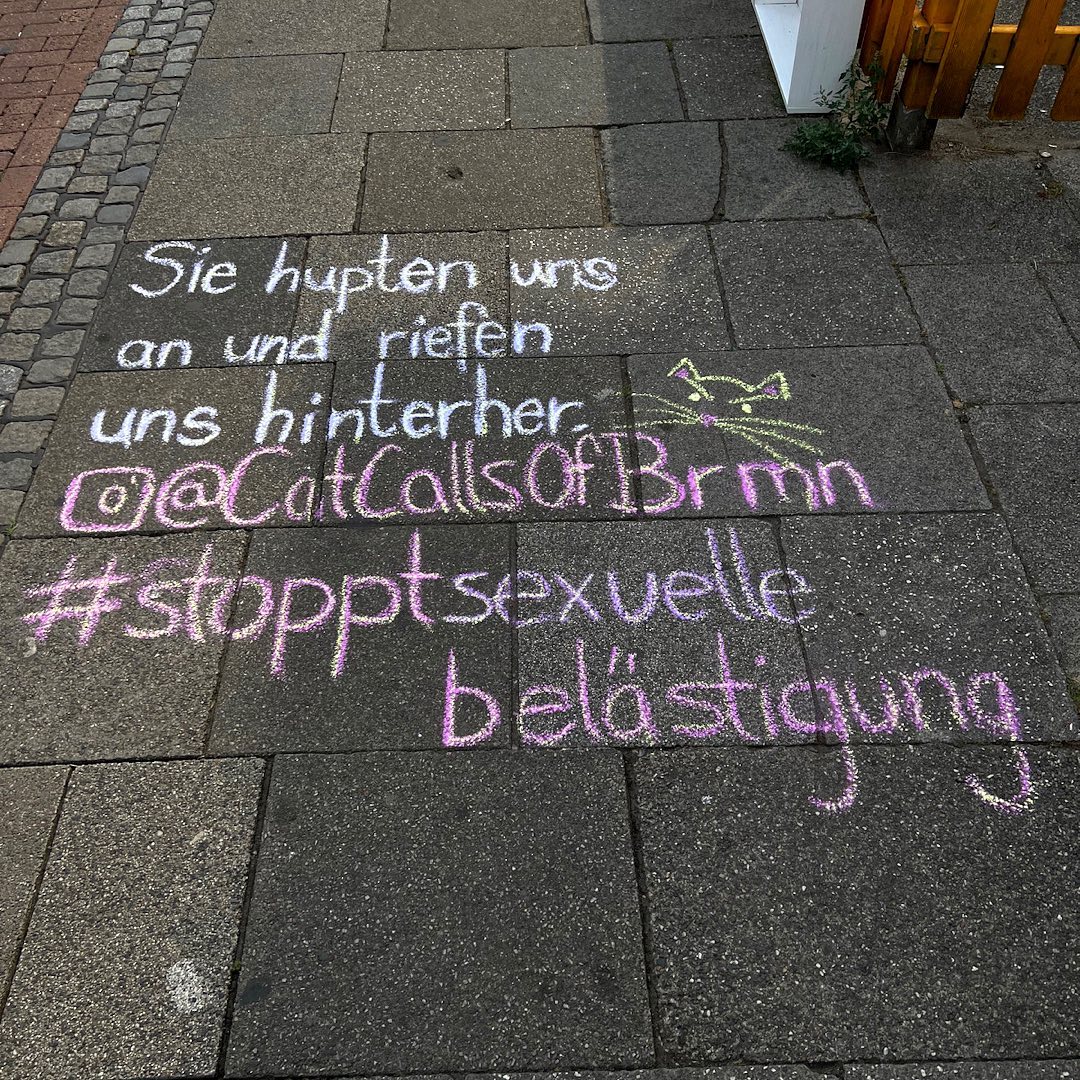 Sie hupten uns
an und riefen
uns hinterher.
@CatCallsOfBrmn
#stopptsexuelle
belästigung